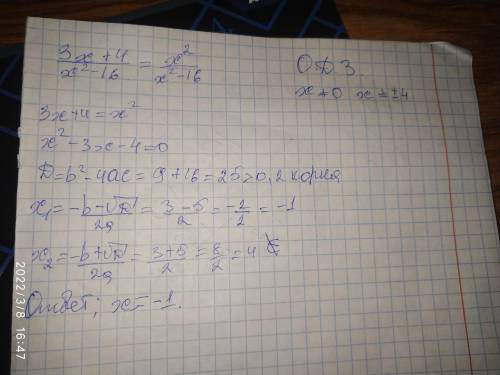 3x+4/x²-16 = x²/x²-16
ОДЗ.
x≠0 x≠±4
3x+4=x²
x²-3x-4=0
D=b²-4ac=9+16=25>0, 2 корня
x₁=-b-√D/2a=3-5/2=-2/2=-1
x₂=-b+√D/2a=3+5/2=8/2=4
Ответ; x=-1.
2022/3/8 16:47